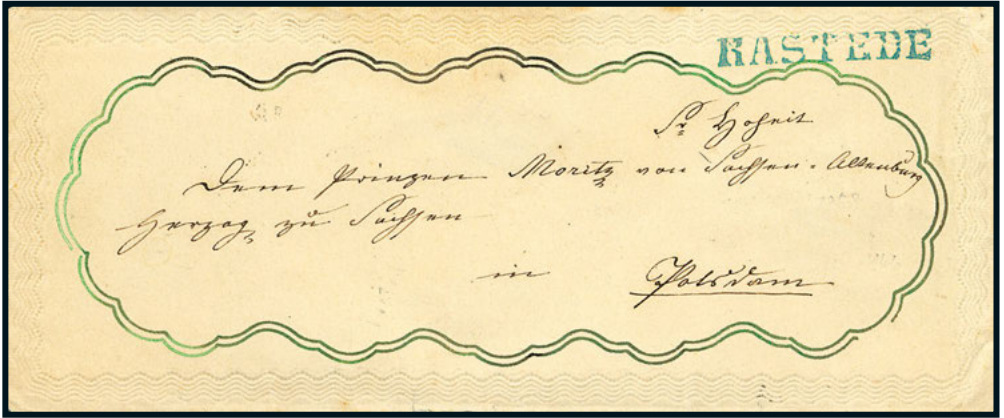 RASTEDE
Sr Hoheit
Dem Prinzen Moritz von Sachsen-Altenburg
Herzog zu Sachsen
in Potsdam